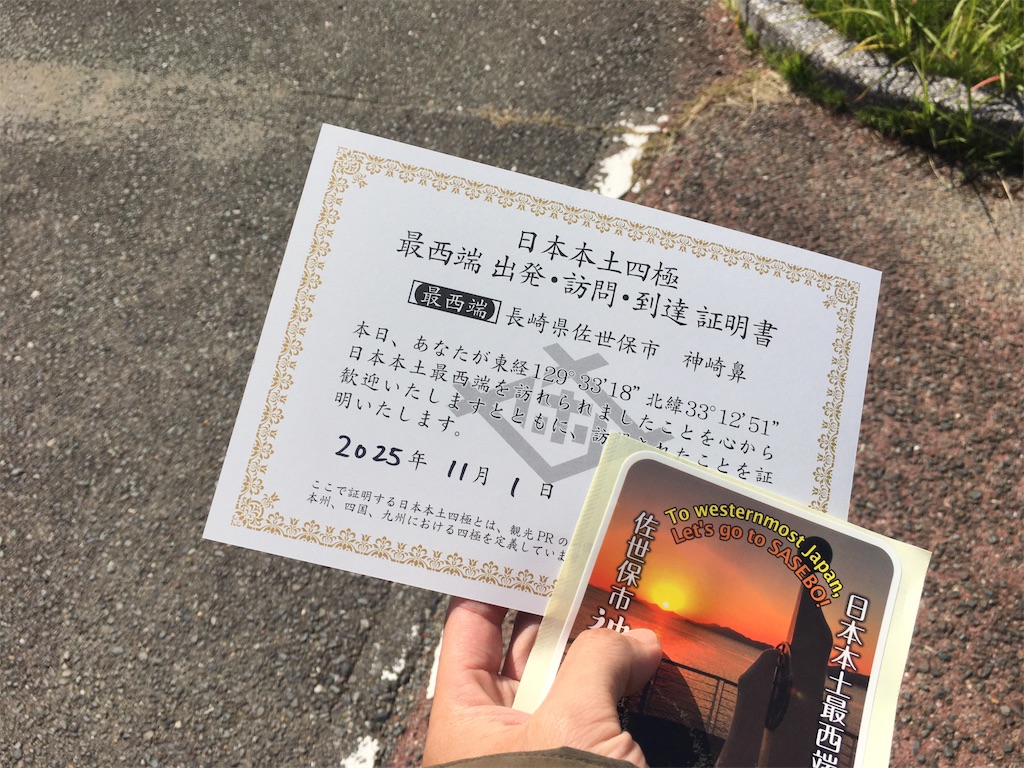 日本本土四極
最西端 出発・訪問・到達 証明書
【最西端】長崎県佐世保市　神崎鼻
本日、あなたが東経129°33'18” 北緯33°12'51”
日本本土最西端を訪れられましたことを心から
歓迎いたしますとともに、訪 れたことを証
明いたします。
2025年 11月 1日
ここで証明する日本本土四極とは、観光PRの
本州、四国、九州における四極を定義していま
To westernmost Japan,
Let's go to SASEBO!
佐世保市神
日本本土最西端